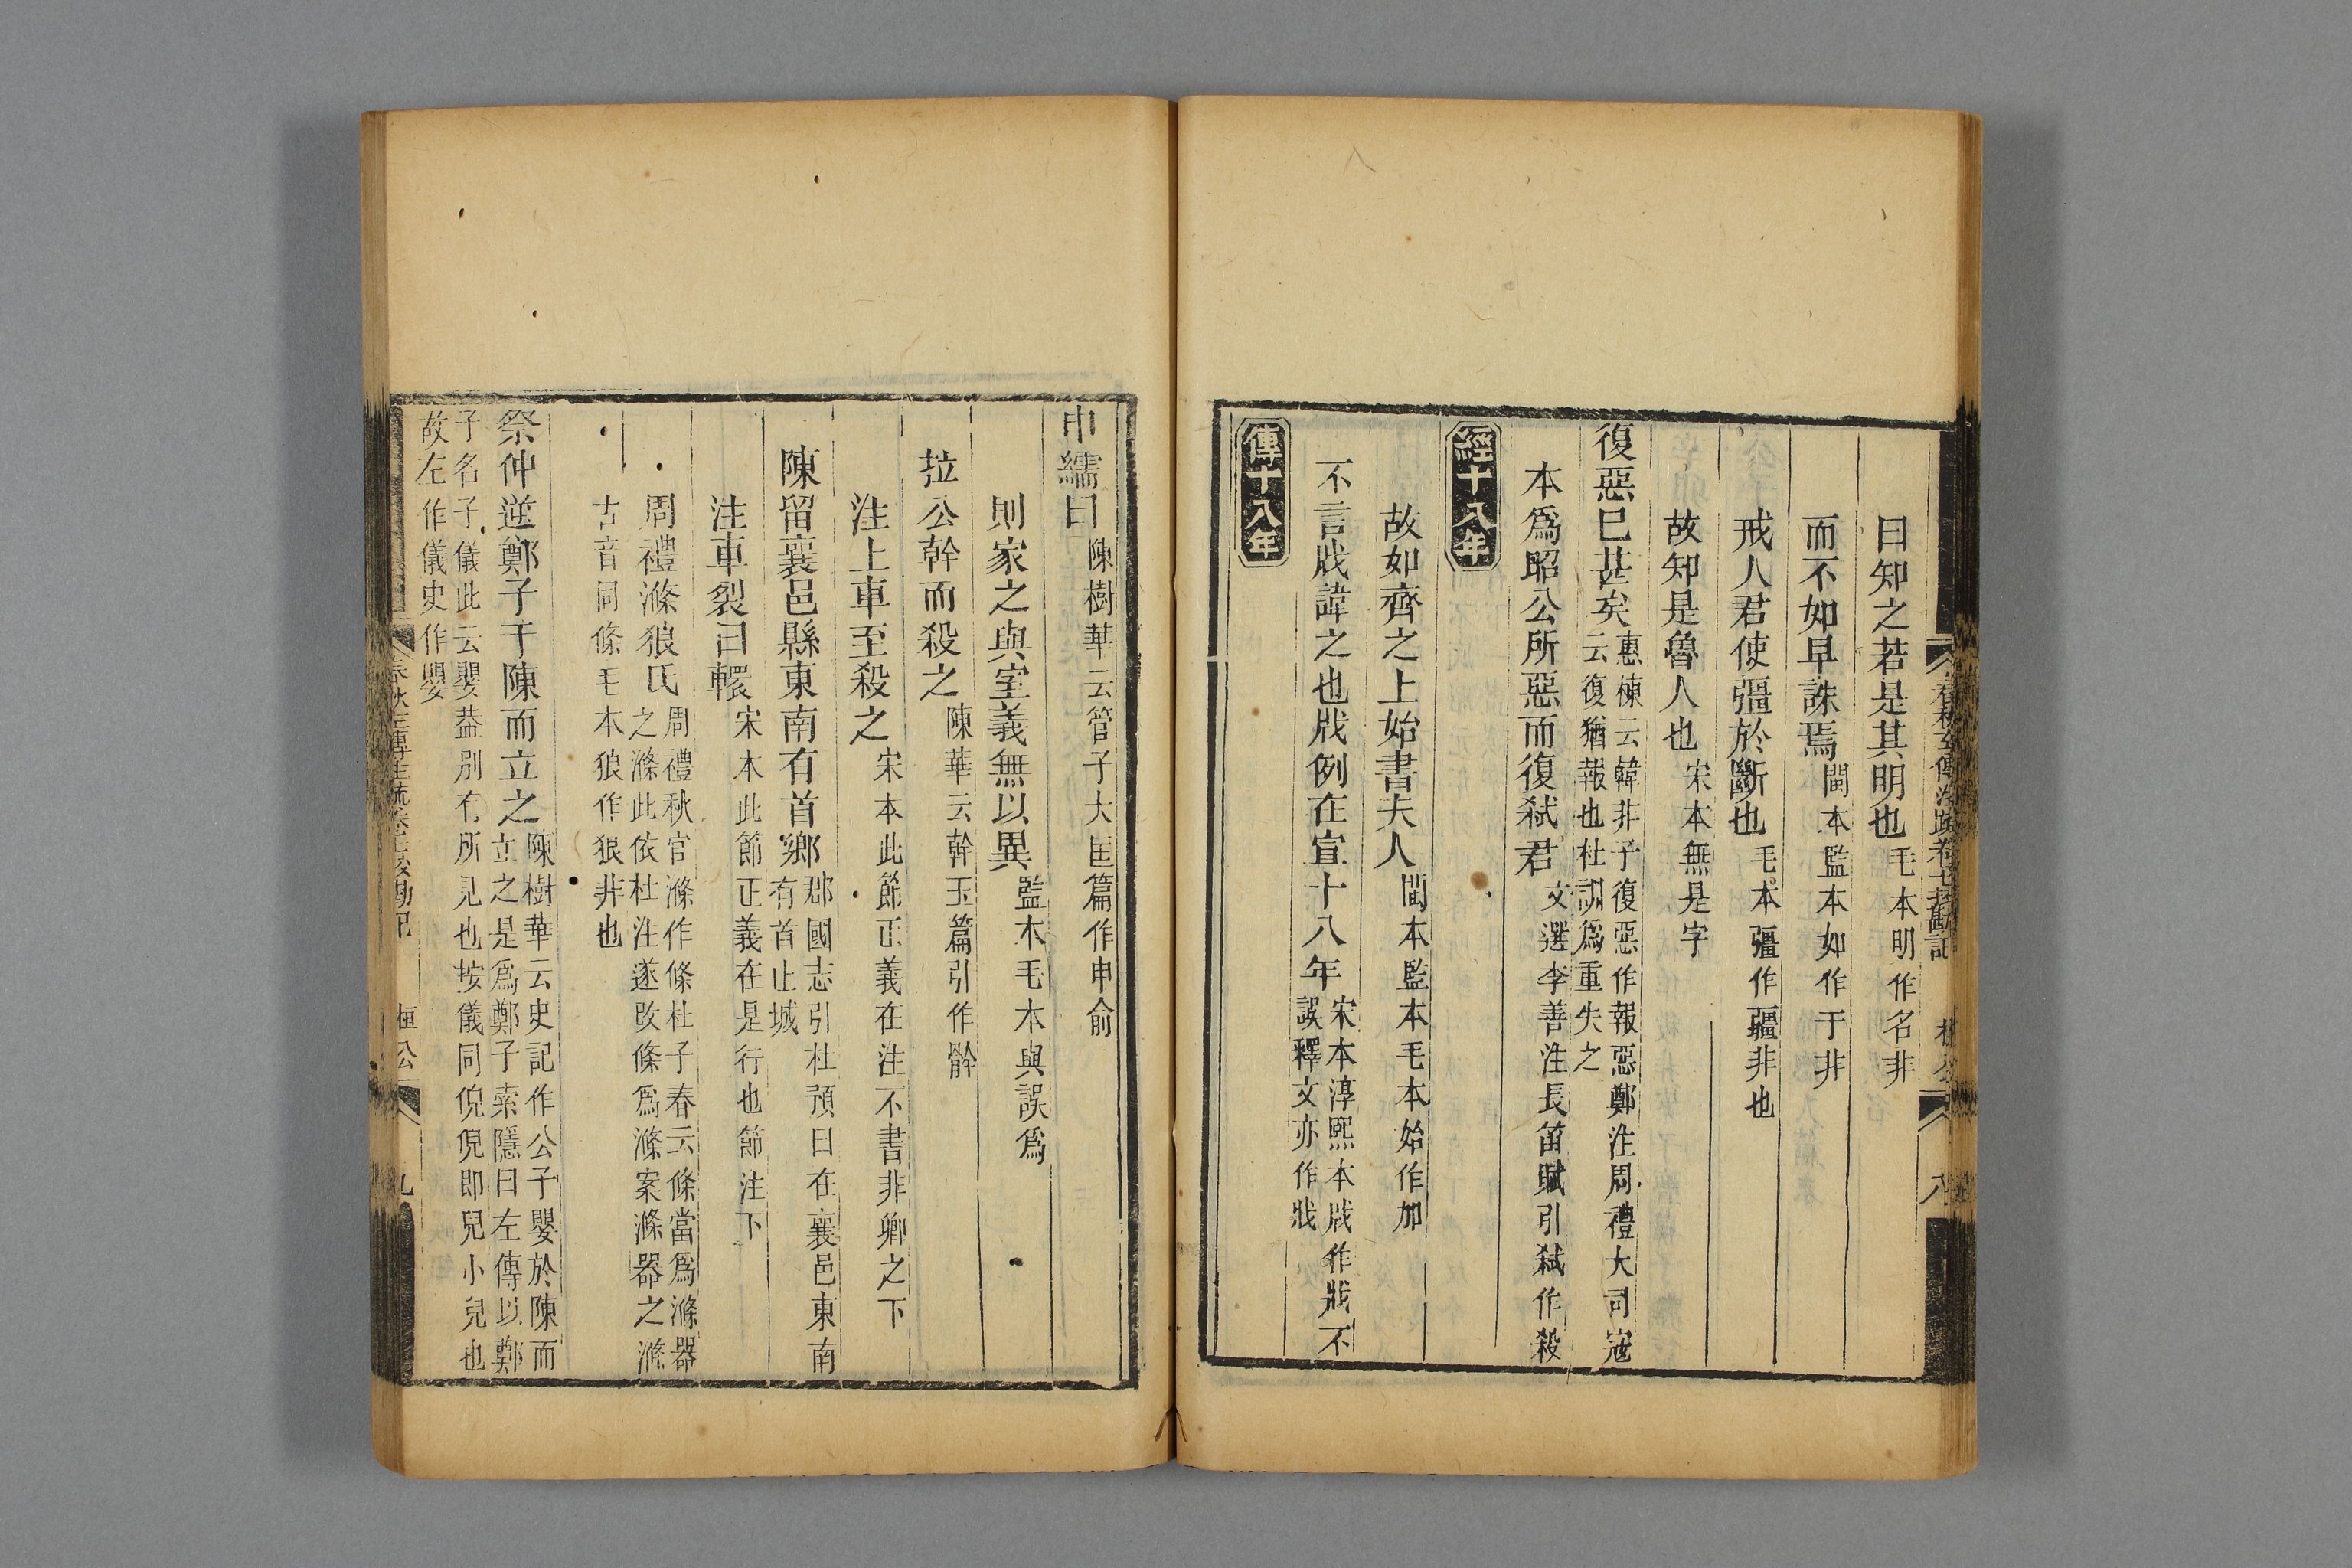 春秋左傳注疏卷七挍勘記 桓公 八
曰知之若是其明也 毛本明作名非
而不如早誅焉 閩本監本如作于非
戒人君使彊於斷也 毛本彊作疆非也
故知是魯人也 宋本無是字
復惡巳甚矣 惠棟云韓非子復惡作報惡鄭注周禮大司寇
云復猶報也杜訓爲重失之
本爲昭公所惡而復弒君 文選李善注長笛賦引弒作殺
經十八年
故如齊之上始書夫人 閩本監本毛本始作加
不言戕諱之也戕例在宣十八年 宋本淳熙本戕作戕不
誤釋文亦作戕
傳十八年
申繻曰 陳樹華云管子大匡篇作申俞
則家之與室義無以異 監本毛本與誤爲
拉公幹而殺之 陳華云幹玉篇引作骭
注上車至殺之 宋本此節正義在注不書非卿之下
陳留襄邑縣東南有首鄉 郡國志引杜預曰在襄邑東南
有首止城
注車裂曰轘 宋本此節正義在是行也節注下
周禮滌狼氏 周禮秋官滌作條杜子春云條當爲滌器
之滌此依杜注遂改條爲滌案滌器之滌
古音同條毛本狼作狠非也
祭仲逆鄭子于陳而立之 陳樹華云史記作公子嬰於陳而
立之是爲鄭子索隱曰左傳以鄭
子名子儀此云嬰葢別有所見也按儀同倪倪即兒小兒也
故左作儀史作嬰
春秋左傳注疏卷七挍勘記 桓公 九